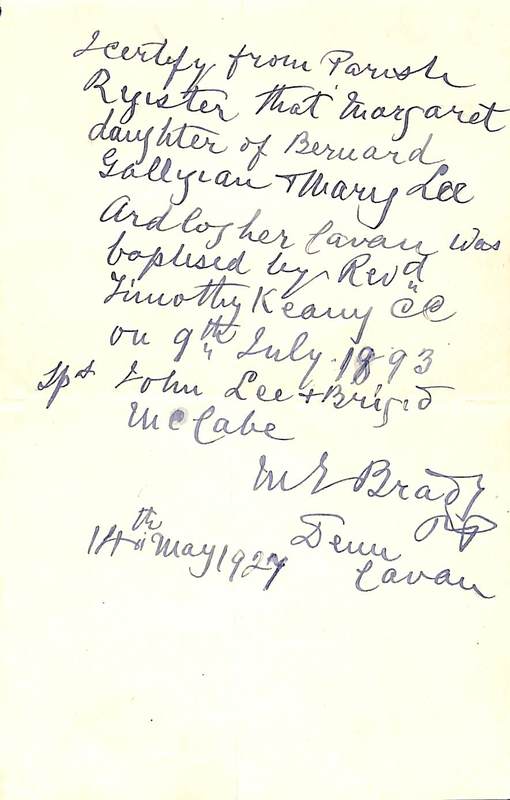 I certify from Parish
Register that Margaret
daughter of Bernard
Gallgian + Mary Lee
Ardlogher Cavan was
baptised by Revd
Timothy Keany CC
on 9th July 1893
Spt John Lee + Brigid
McCabe
M E Brady
PP
14th May 1927 Denn
Cavan